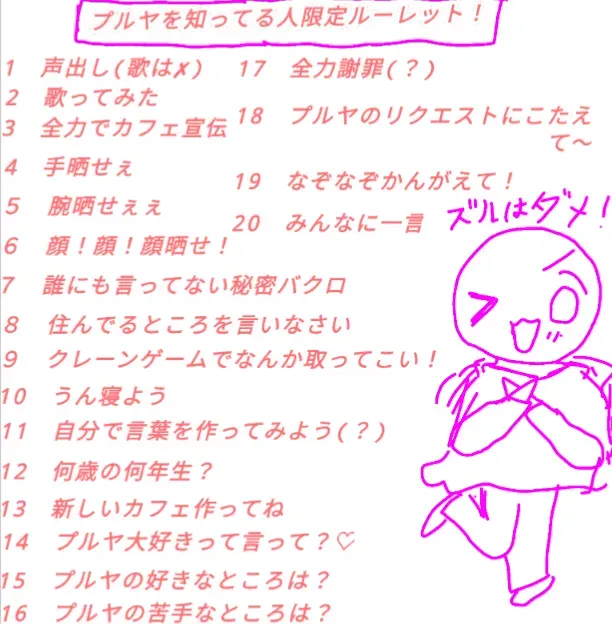 プルヤを知ってる人限定ルーレット！
1 声出し(歌は✘)
2 歌ってみた
3 全力でカフェ宣伝
4 手晒せぇ
5 腕晒せぇぇ
6 顔！顔！顔晒せ！
7 誰にも言ってない秘密バクロ
8 住んでるところを言いなさい
9 クレーンゲームでなんか取ってこい！
10 うん寝よう
11 自分で言葉を作ってみよう(？)
12 何歳の何年生？
13 新しいカフェ作ってね
14 プルヤ大好きって言って？♡
15 プルヤの好きなところは？
16 プルヤの苦手なところは？
17 全力謝罪(？)
18 プルヤのリクエストにこたえ
て〜
19 なぞなぞかんがえて！
20 みんなに一言
ズルはダメ！